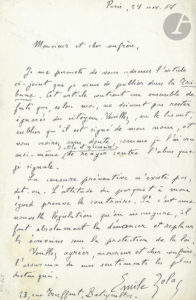 Paris, 24 nov. 68
Monsieur et cher confrère,
Je me permets de vous adresser l'article
ci-joint que je viens de publier dans la Tri-
bune. Cet article contient un ensemble de
faits qui, selon moi, ne doivent pas rester
ignorés du citoyen. Veuillez, en le lisant,
oublier qu'il est signé de mon nom, et
vous verrez, sans doute, comme je l'ai vu
moi-même, de réagir contre l'abus que
je signale.
La censure préventive n'existe pas,
dit-on. L'attitude du parquet à mon
égard prouve le contraire. Si c'est une
nouvelle législation qu'on inaugure, il
faut absolument la dénoncer et replacer
les écrivains sous la protection de la loi.
Veuillez agréer, monsieur et cher confrère
l'assurance de mes sentiments les plus
distingués.
Emile Zola
23, rue Truffaut, Batignolles